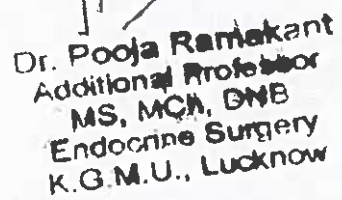 Dr. Pooja Ramakant
Additional Professor
MS, MCh, DNB
Endocrine Surgery
K.G.M.U., Lucknow